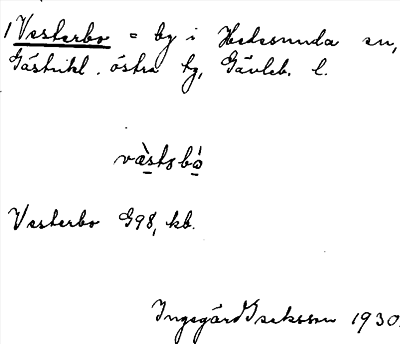 1 Vesterbo = by i Hedesunda sn,
Gästrikl. östra tg, Gävleb. l.
Vesterbo G98, kb.
Ingegärd Isaksson 1930.